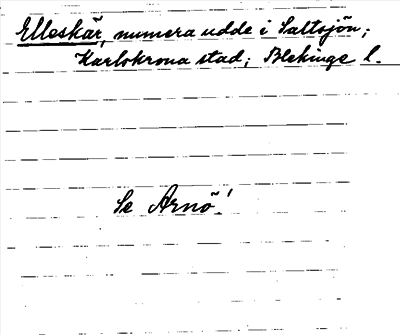 Elleskär, numera udde i Saltsjön;
Karlskrona stad; Blekinge l.
Se Arnö!